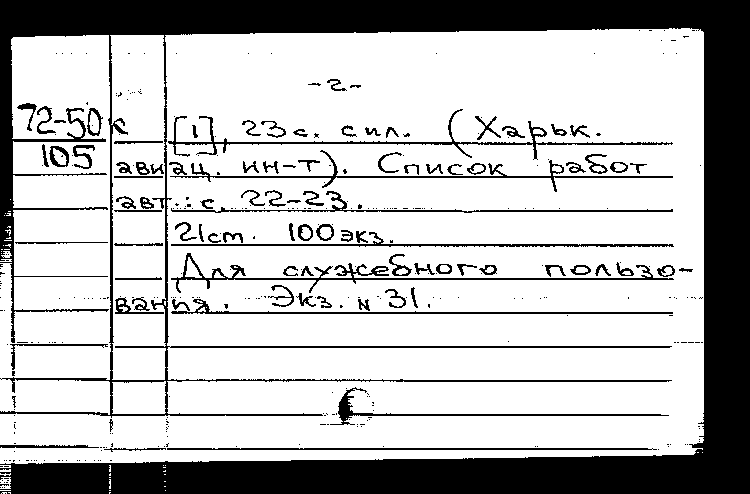 -2-
72-50к
105
[1], 23 с. с ил. (Харьк.
авиац. ин-т). Список работ
авт.: с. 22-23.
21 см. 100 экз.
Для служебного пользо-
вания. Экз. N 31.